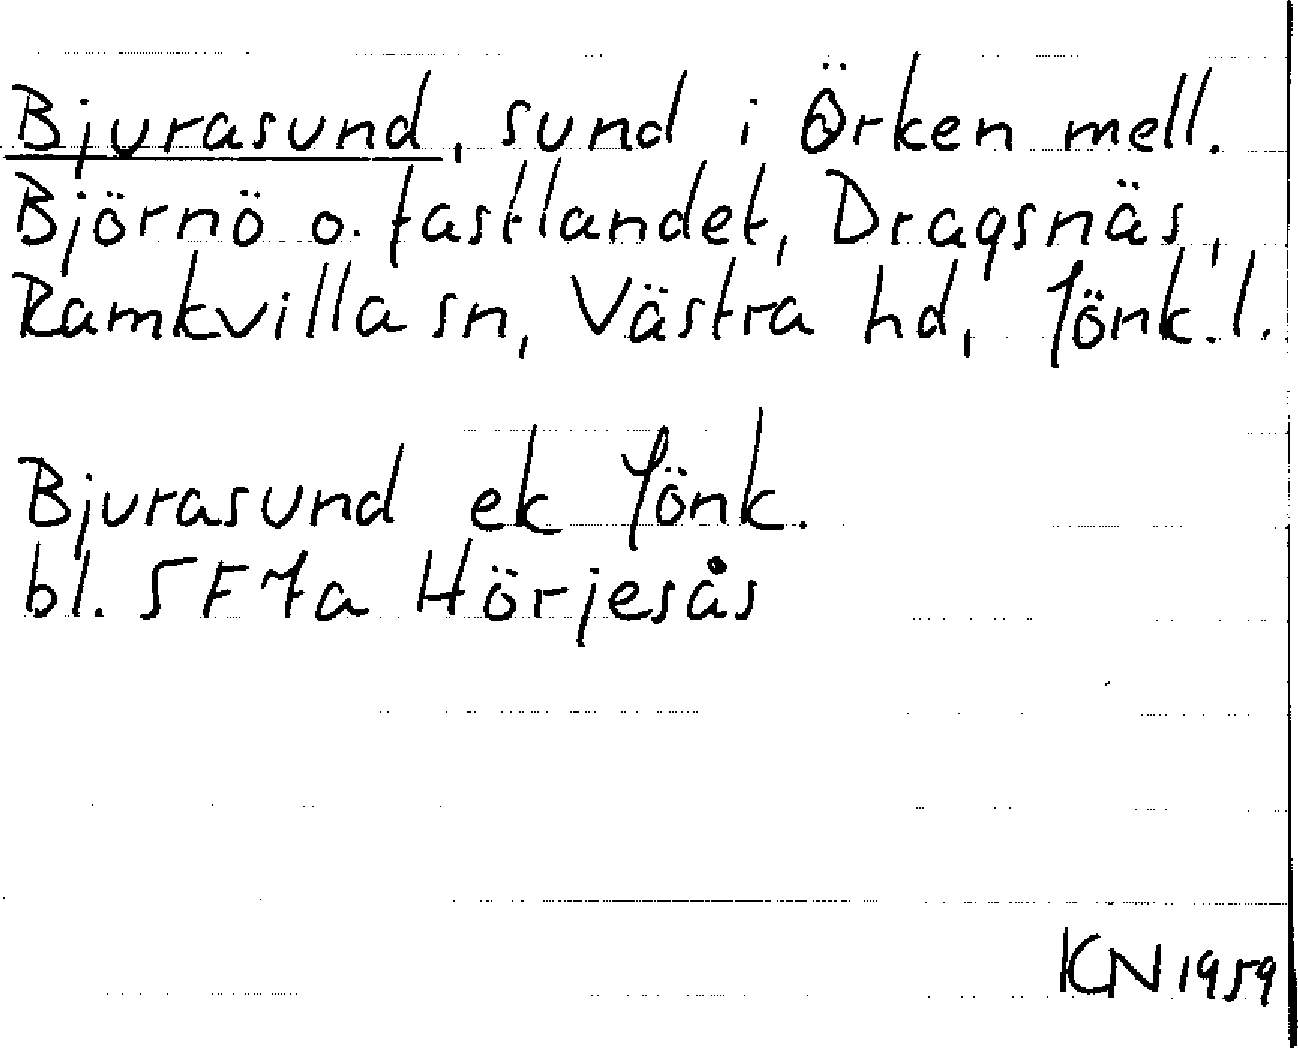 Bjurasund, sund i Örken mell.
Björnö o. fastlandet, Dragsnäs,
Ramkvilla sn, Västra hd, Jönk. l.
Bjurasund ek Jönk.
bl. 5F7a Hörjesås
KN 1959